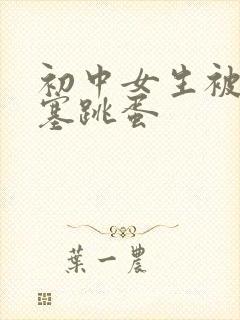 初中女生被
塞跳蛋
葉一農